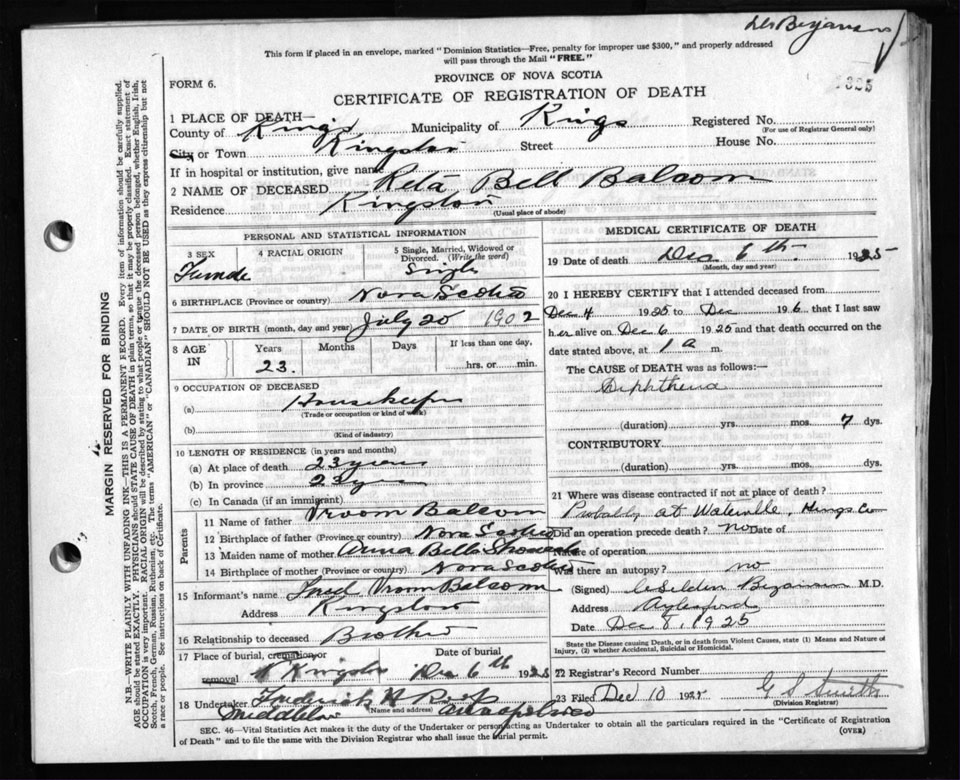 This form if placed in an envelope, marked "Dominion Statistics—Free, penalty for improper use $300," and properly addressed
will pass through the Mail "FREE."
PROVINCE OF NOVA SCOTIA
FORM 6.
CERTIFICATE OF REGISTRATION OF DEATH
1 PLACE OF DEATH—
County of Kings Municipality of Kings Registered No.
(For use of Registrar General only)
City or Town Kingston Street House No.
If in hospital or institution, give name
2 NAME OF DECEASED Reta Bell Balcom
Residence Kingston
(Usual place of abode)
PERSONAL AND STATISTICAL INFORMATION
3 SEX 4 RACIAL ORIGIN 5 Single, Married, Widowed or Divorced. (Write the word)
Female Single
6 BIRTHPLACE (Province or country) Nova Scotia
7 DATE OF BIRTH (month, day and year) July 20 1902
8 AGE IN Years Months Days If less than one day,
23. hrs. or min.
9 OCCUPATION OF DECEASED
(a) Housekeeper
(Trade or occupation or kind of work)
(b)
(Kind of industry)
10 LENGTH OF RESIDENCE (in years and months)
(a) At place of death 23 years
(b) In province 23 yrs
(c) In Canada (if an immigrant)
Parents
11 Name of father Vroom Balcom
12 Birthplace of father (Province or country) Nova Scotia
13 Maiden name of mother Anna Bell
14 Birthplace of mother (Province or country) Nova Scotia
15 Informant's name Fred Vrom Balcom
Address Kingston
16 Relationship to deceased Brother
17 Place of burial, cremation or removal Date of burial
N Kingston Dec 6th 1925
18 Undertaker Frederick A
(Name and address)
Middleton Annapolis co
MEDICAL CERTIFICATE OF DEATH
19 Date of death Dec 6th 1925
(Month, day and year)
20 I HEREBY CERTIFY that I attended deceased from
Dec 4 1925 to Dec 6 that I last saw
her alive on Dec 6 1925 and that death occurred on the
date stated above, at 1 a m.
The CAUSE of DEATH was as follows:—
Diphtheria
(duration) yrs. mos. 7 dys.
CONTRIBUTORY
(duration) yrs. mos. dys.
21 Where was disease contracted if not at place of death?
Probably at Waterville, Kings Co
Did an operation precede death? no Date of
Nature of operation
Was there an autopsy? no
(Signed) M.D.
Address Aylesford
Date Dec 8, 1925
State the Disease causing Death, or in death from Violent Causes, state (1) Means and Nature of
Injury, (2) whether Accidental, Suicidal or Homicidal.
22 Registrar's Record Number
23 Filed Dec 10 1925 G S Smith
(Division Registrar)
SEC. 46—Vital Statistics Act makes it the duty of the Undertaker or person acting as Undertaker to obtain all the particulars required in the "Certificate of Registration
of Death" and to file the same with the Division Registrar who shall issue the burial permit. (OVER)
MARGIN RESERVED FOR BINDING
N.B.—WRITE PLAINLY WITH UNFADING INK—THIS IS A PERMANENT RECORD. Every item of information should be carefully supplied.
AGE should be stated EXACTLY. PHYSICIANS should STATE CAUSE OF DEATH in plain terms, so that it may be properly classified. Exact statement of
OCCUPATION is very important. RACIAL ORIGIN will be described by stating to what people or race the deceased person belonged, whether English, Irish,
Scotch, French, German, Russian, Ruthenian, etc. The terms "AMERICAN" or "CANADIAN" SHOULD NOT BE USED as they express citizenship but not
a race or people. See instructions on back of Certificate.